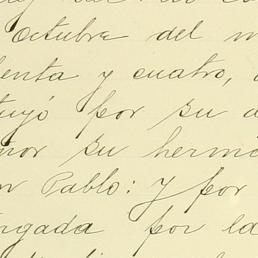 octubre del m
enta y cuatro,
tuyó por su d
nor su herm
n Pablo: y por
ngada por la